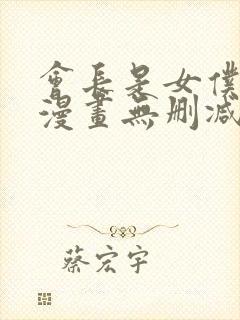 會長是女僕
漫畫無刪減
蔡宏宇